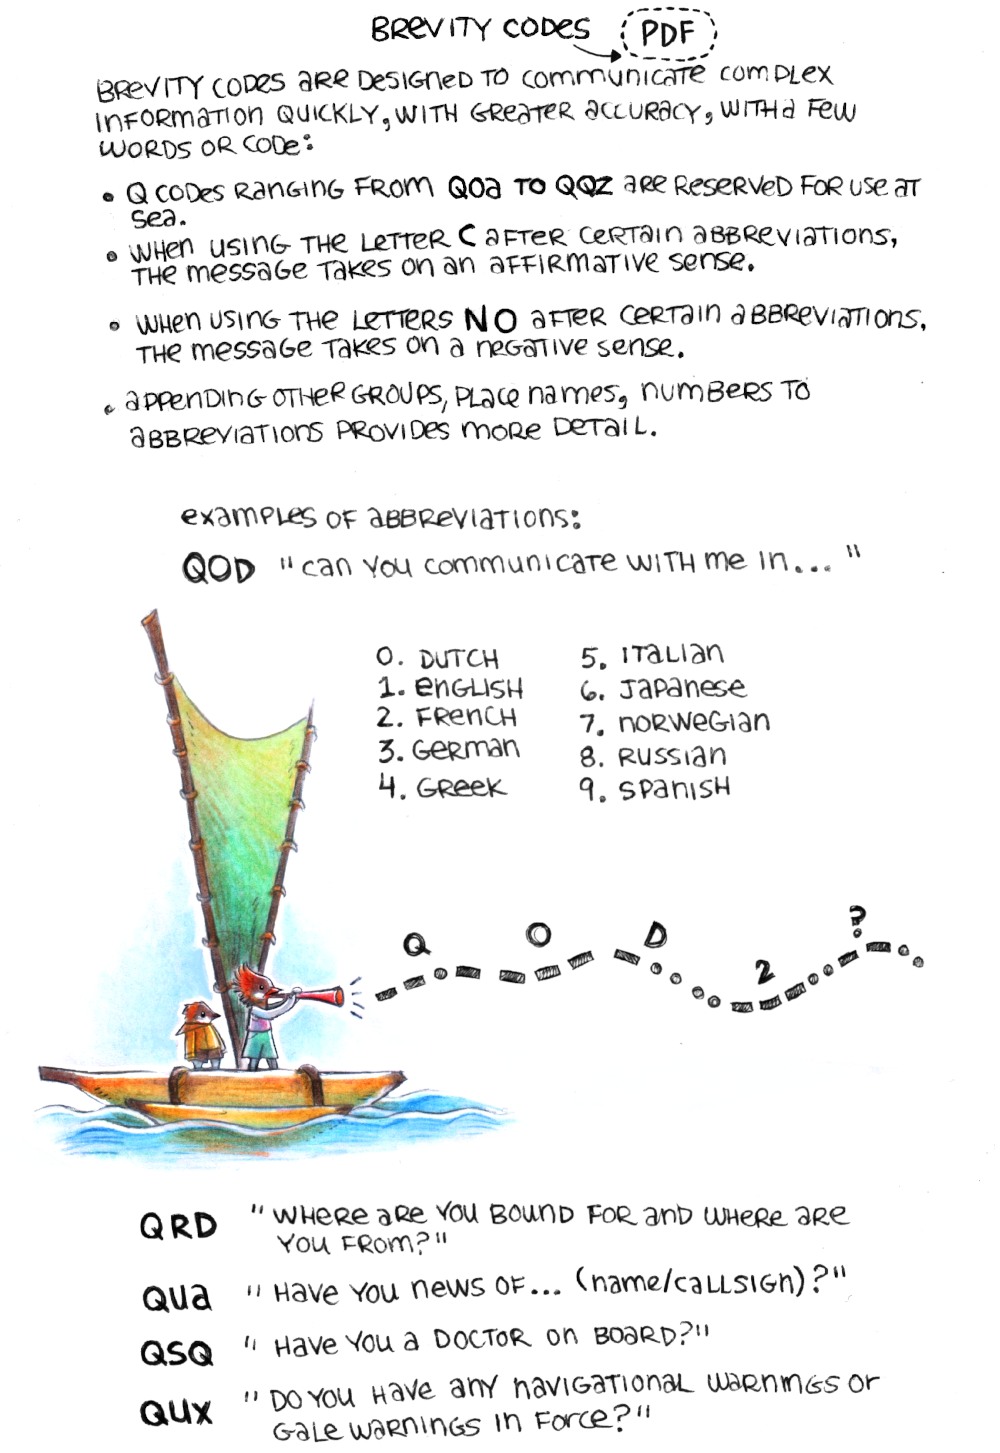 BREVITY CODES
PDF
BREVITY CODES ARE DESIGNED TO COMMUNICATE COMPLEX
INFORMATION QUICKLY, WITH GREATER ACCURACY, WITH A FEW
WORDS OR CODE:
• Q CODES RANGING FROM QOA TO QQZ ARE RESERVED FOR USE AT
SEA.
• WHEN USING THE LETTER C AFTER CERTAIN ABBREVIATIONS,
THE MESSAGE TAKES ON AN AFFIRMATIVE SENSE.
• WHEN USING THE LETTERS NO AFTER CERTAIN ABBREVIATIONS,
THE MESSAGE TAKES ON A NEGATIVE SENSE.
• APPENDING OTHER GROUPS, PLACE NAMES, NUMBERS TO
ABBREVIATIONS PROVIDES MORE DETAIL.
EXAMPLES OF ABBREVIATIONS:
QOD "CAN YOU COMMUNICATE WITH ME IN... "
0. DUTCH
1. ENGLISH
2. FRENCH
3. GERMAN
4. GREEK
5. ITALIAN
6. JAPANESE
7. NORWEGIAN
8. RUSSIAN
9. SPANISH
Q O D 2 ?
QRD "WHERE ARE YOU BOUND FOR AND WHERE ARE
YOU FROM?"
QUA "HAVE YOU NEWS OF... (NAME/CALLSIGN)?"
QSQ "HAVE YOU A DOCTOR ON BOARD?"
QUX "DO YOU HAVE ANY NAVIGATIONAL WARNINGS OR
GALE WARNINGS IN FORCE?"